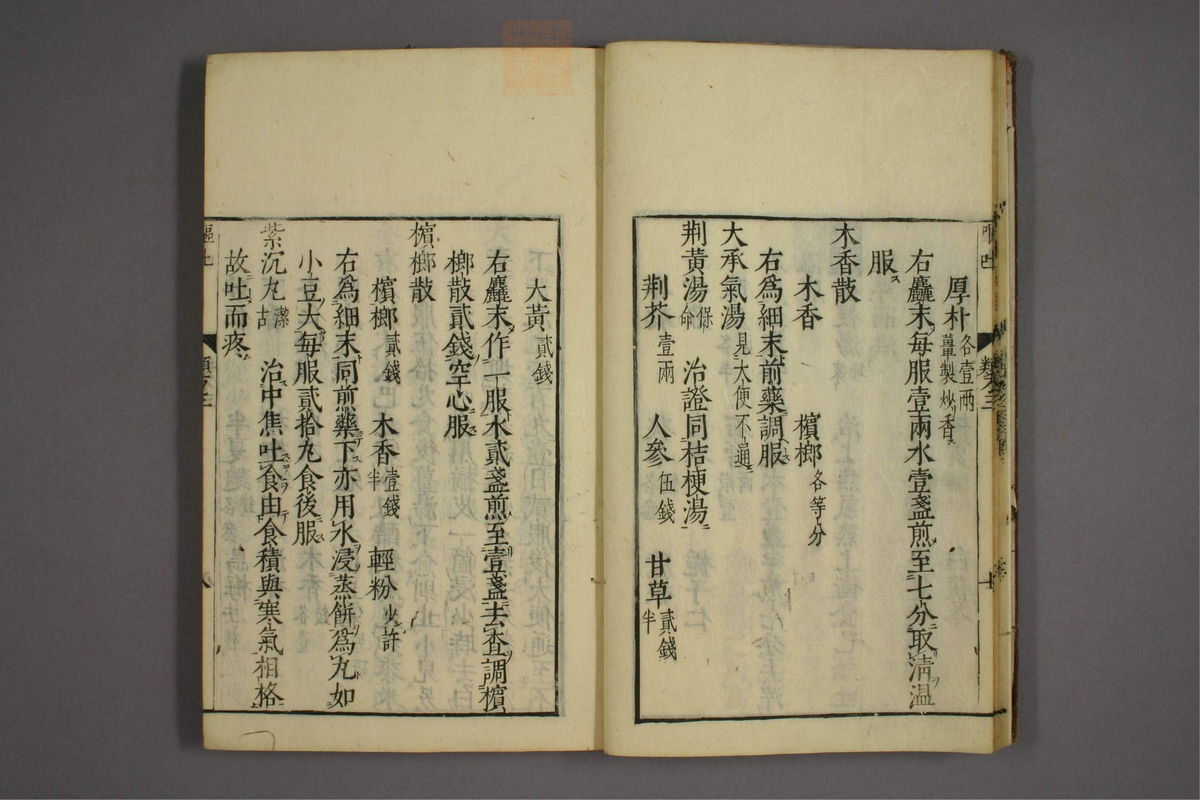 厚朴 各壹兩 薑製炒香
右麤末每服壹兩水壹盞煎至七分取淸溫
服
木香散
木香 檳榔 各等分
右爲細末前藥調服
大承氣湯 見大便不通
荆黃湯 保命 治證同桔梗湯
荆芥 壹兩 人參 伍錢 甘草 貳錢半
大黃 貳錢
右麤末作一服水貳盞煎至壹盞去査調檳
榔散貳錢空心服
檳榔散
檳榔 貳錢 木香 壹錢半 輕粉 少許
右爲細末同前藥下亦用水浸蒸餠爲丸如
小豆大每服貳拾丸食後服
紫沉丸 潔古 治中焦吐食由食積與寒氣相格
故吐而疼